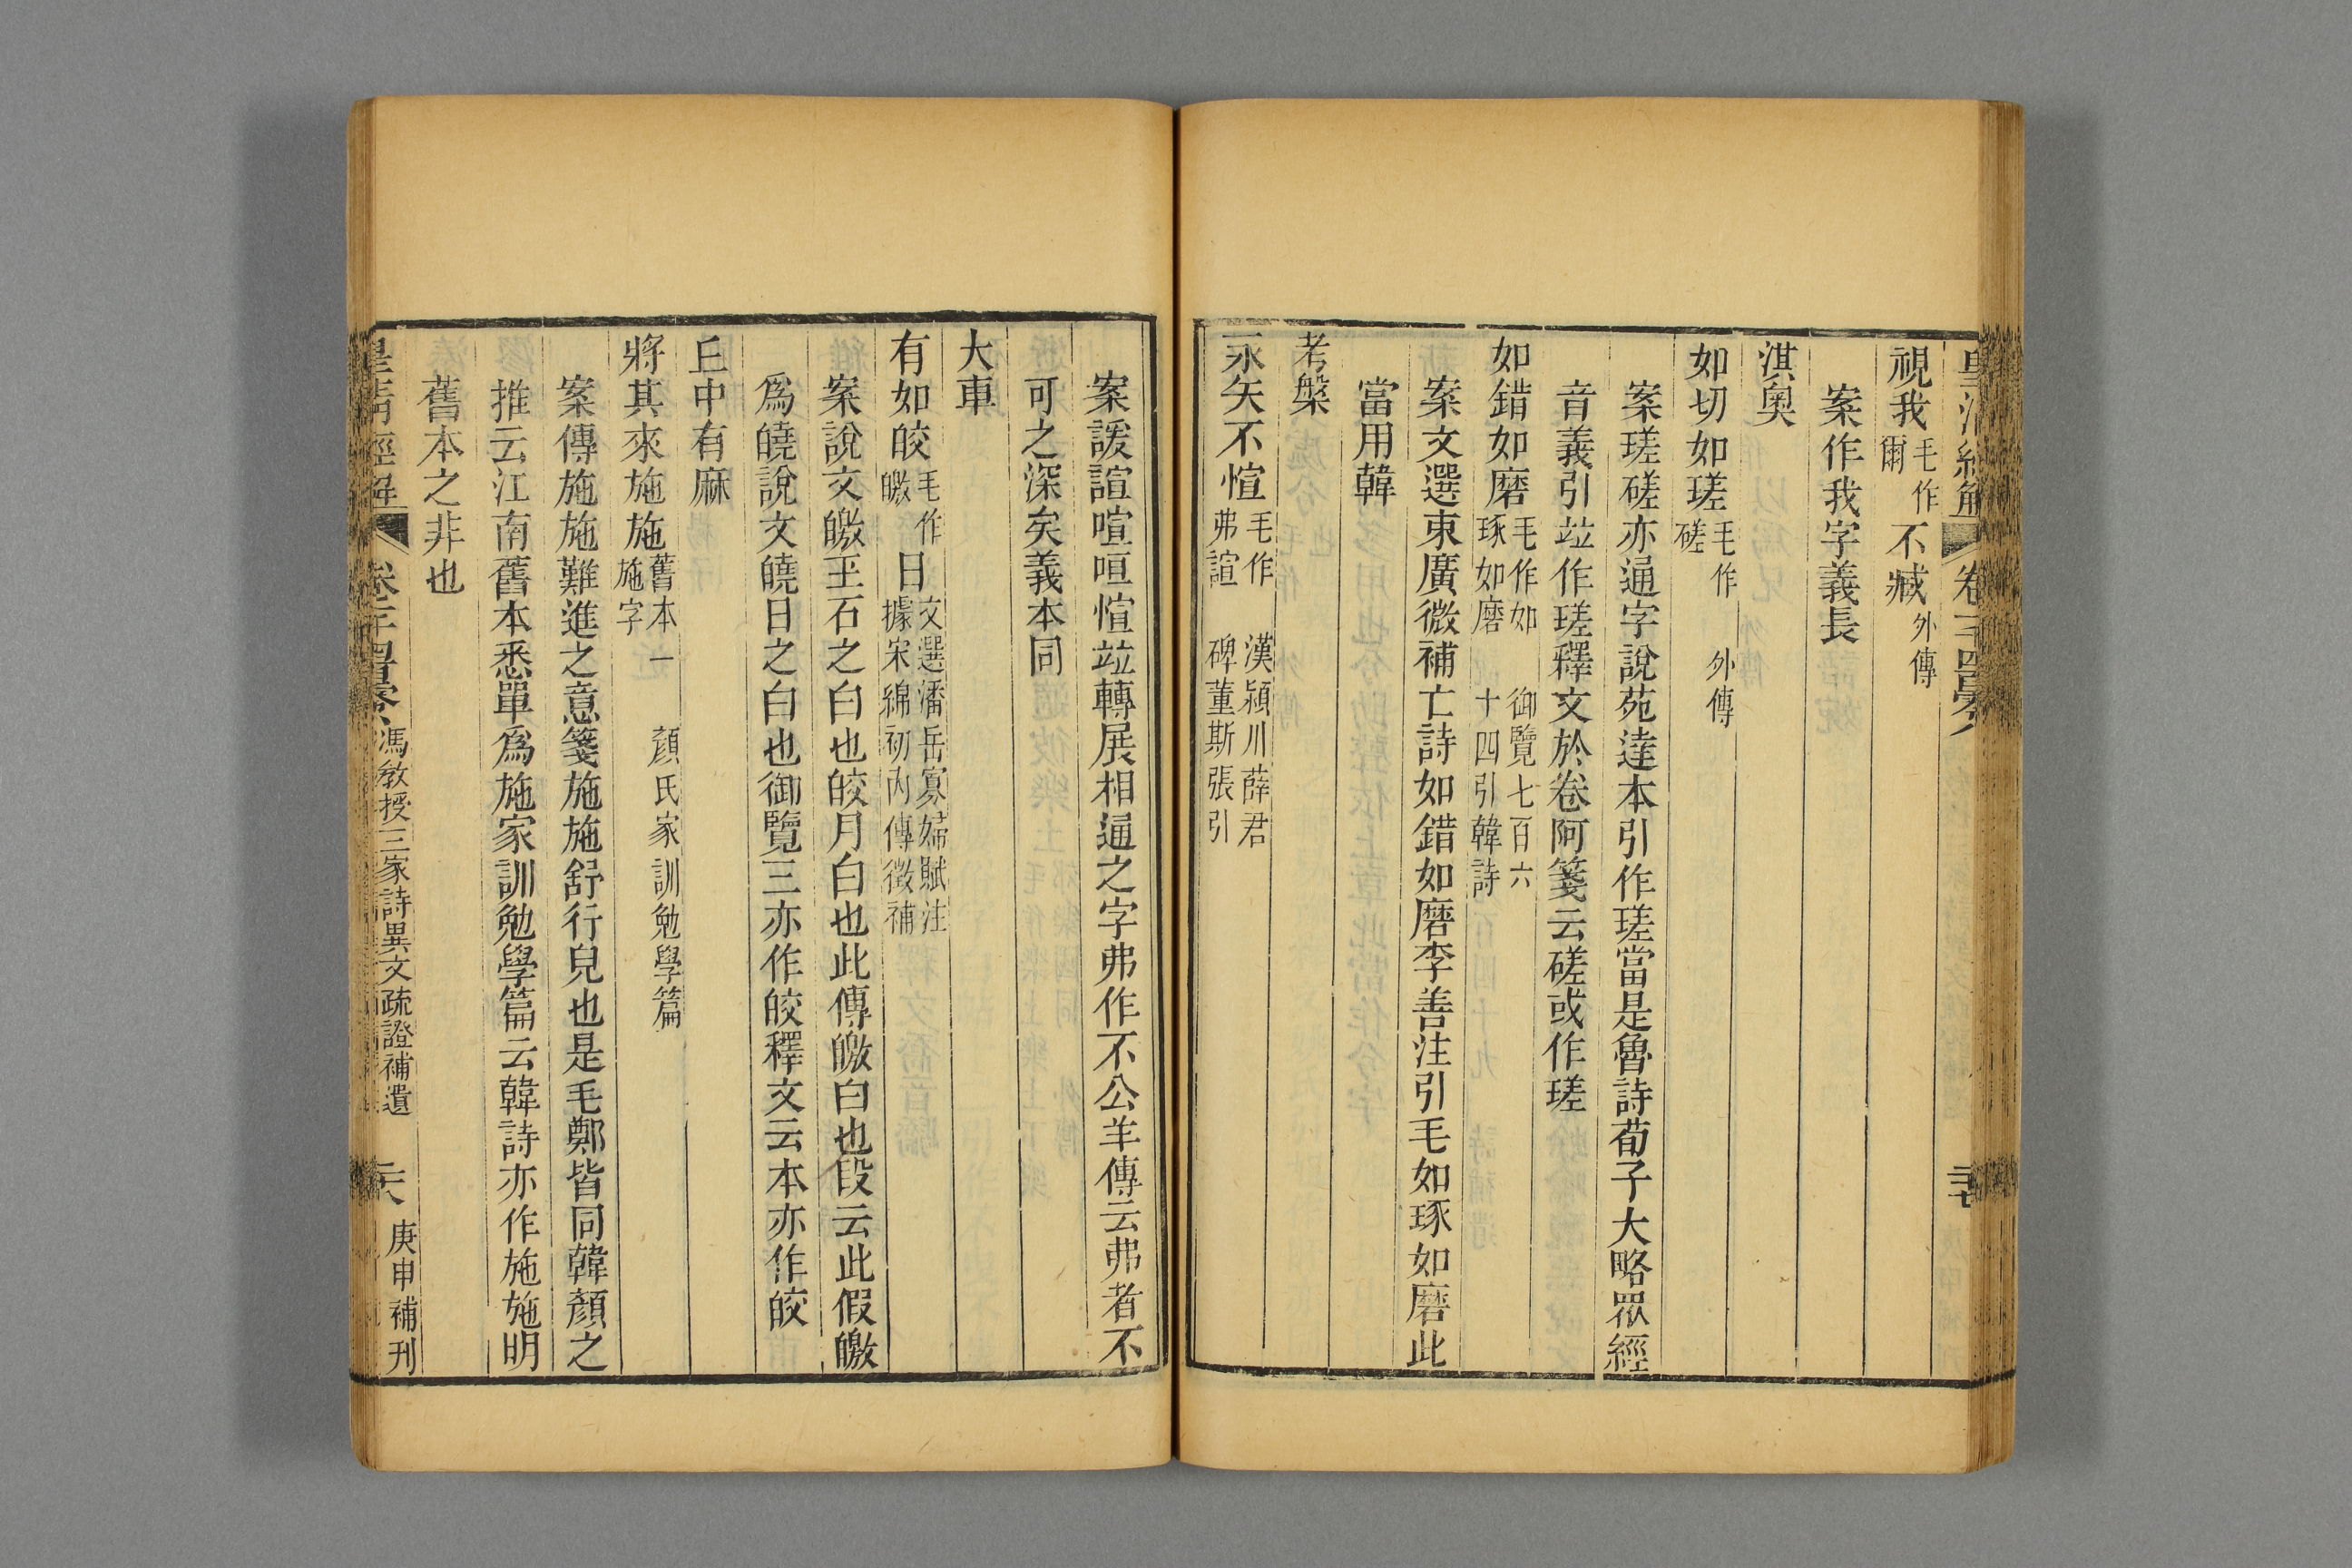 皇清經解 卷一千四百八
視我毛作爾不臧外傳
案作我字義長
淇奥
如切如瑳毛作磋 外傳
案瑳磋亦通字說苑達本引作瑳當是魯詩荀子大略眾經
音義引竝作瑳釋文於卷阿箋云磋或作瑳
如錯如磨毛作如琢如磨 御覽七百六十四引韓詩
案文選東廣微補亡詩如錯如磨李善注引毛如琢如磨此
當用韓
考槃
永矢不愃毛作弗諼 漢潁川薛君碑董斯張引
案諼諠喧咺愃竝轉展相通之字弗作不公羊傳云弗者不
可之深矣義本同
大車
有如皎毛作皦日文選潘岳寡婦賦注據宋綿初內傳徵補
案說文皦玉石之白也皎月白也此傳皦白也段云此假皦
為皢說文皢日之白也御覽三亦作皎釋文云本亦作皎
丘中有麻
將其來施施舊本一施字 顏氏家訓勉學篇
案傳施施難進之意箋施施舒行皃也是毛鄭皆同韓顏之
推云江南舊本悉單為施家訓勉學篇云韓詩亦作施施明
舊本之非也
皇清經解 馮教授三家詩異文疏證補遺 庚申補刊